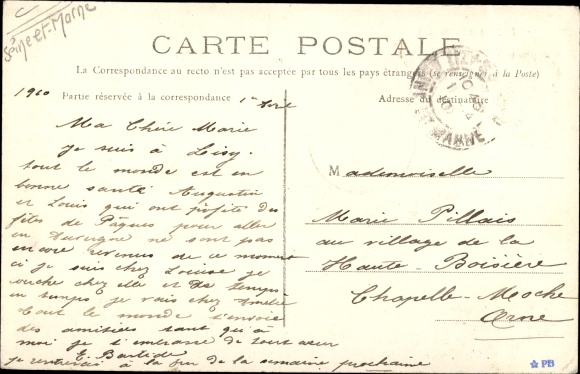 Seine-et-Marne
CARTE POSTALE
La Correspondance au recto n'est pas acceptée par tous les pays étrangers (se renseigner à la Poste)
Partie réservée à la correspondance
Adresse du destinataire
1910 1er Avril
Ma Chère Marie
je suis à Lisy.
tout le monde est en
bonne santé Augustin
et Louis qui ont profité des
fêtes de Pâques pour aller
en Auvergne ne sont pas
encore revenus de ce moment
ci je suis chez Louise je
couche chez elle et de temps
en temps je vais chez Amélie
tout le monde t'envoie
des amitiés tant qu'à
moi je t'embrasse de tout cœur
E. Bastide
je rentrerai à la fin de la semaine prochaine
Mademoiselle
Marie Pillais
au village de la
Haute-Boisière
Chapelle-Moche
Orne
MARNE
PB